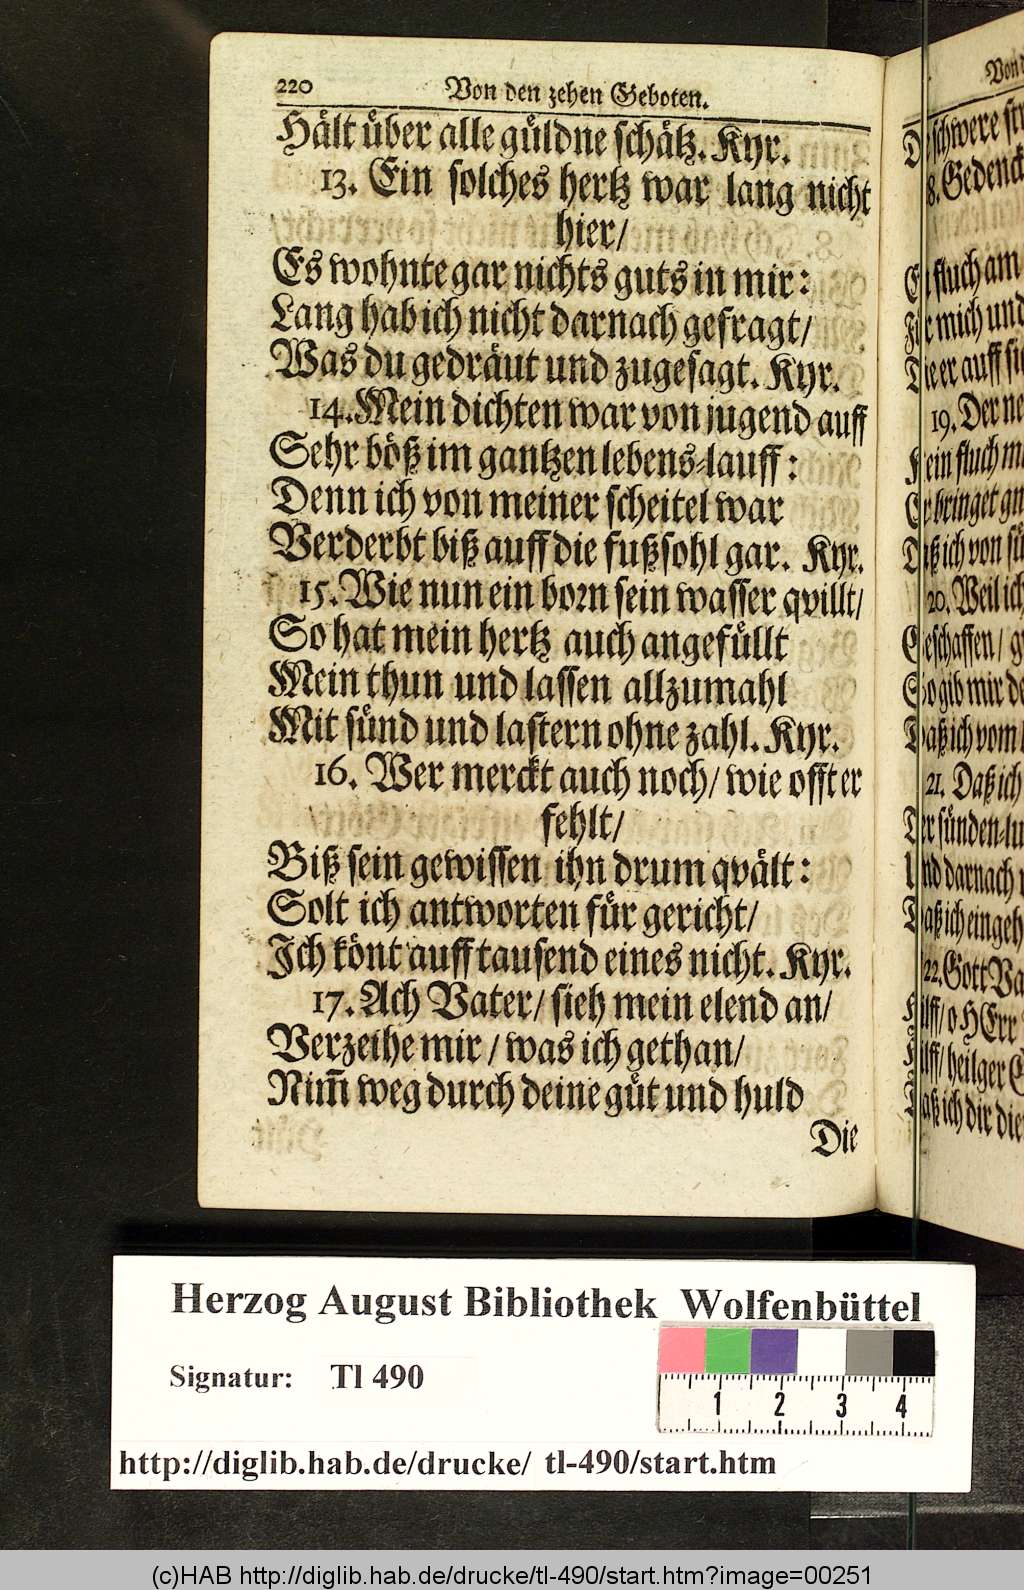 220 Von den zehen Geboten.
Hält über alle güldne schätz. Kyr.
13. Ein solches hertz war lang nicht
hier/
Es wohnte gar nichts guts in mir:
Lang hab ich nicht darnach gefragt/
Was du gedräut und zugesagt. Kyr.
14. Mein dichten war von jugend auff
Sehr böß im gantzen lebens-lauff:
Denn ich von meiner scheitel war
Verderbt biß auff die fußsohl gar. Kyr.
15. Wie nun ein born sein wasser qvillt/
So hat mein hertz auch angefüllt
Mein thun und lassen allzumahl
Mit sünd und lastern ohne zahl. Kyr.
16. Wer merckt auch noch/ wie offt er
fehlt/
Biß sein gewissen ihn drum qvält:
Solt ich antworten für gericht/
Ich könt auff tausend eines nicht. Kyr.
17. Ach Vater/ sieh mein elend an/
Verzeihe mir/ was ich gethan/
Nim̅ weg durch deine güt und huld
Die
Von
schwere
8. Gedenck
fluch am
mich und
er auff
19. Der
fluch
bringet
ich von
20. Weil ich
Geschaffen/
So gib mir
ich vom
21. Daß ich
sünden-
darnach
ich eingeh
22. Gott Va
o HErr
heilger
ich dir die
Herzog August Bibliothek Wolfenbüttel
Signatur: Tl 490
1 2 3 4
http://diglib.hab.de/drucke/ tl-490/start.htm
(c)HAB http://diglib.hab.de/drucke/tl-490/start.htm?image=00251